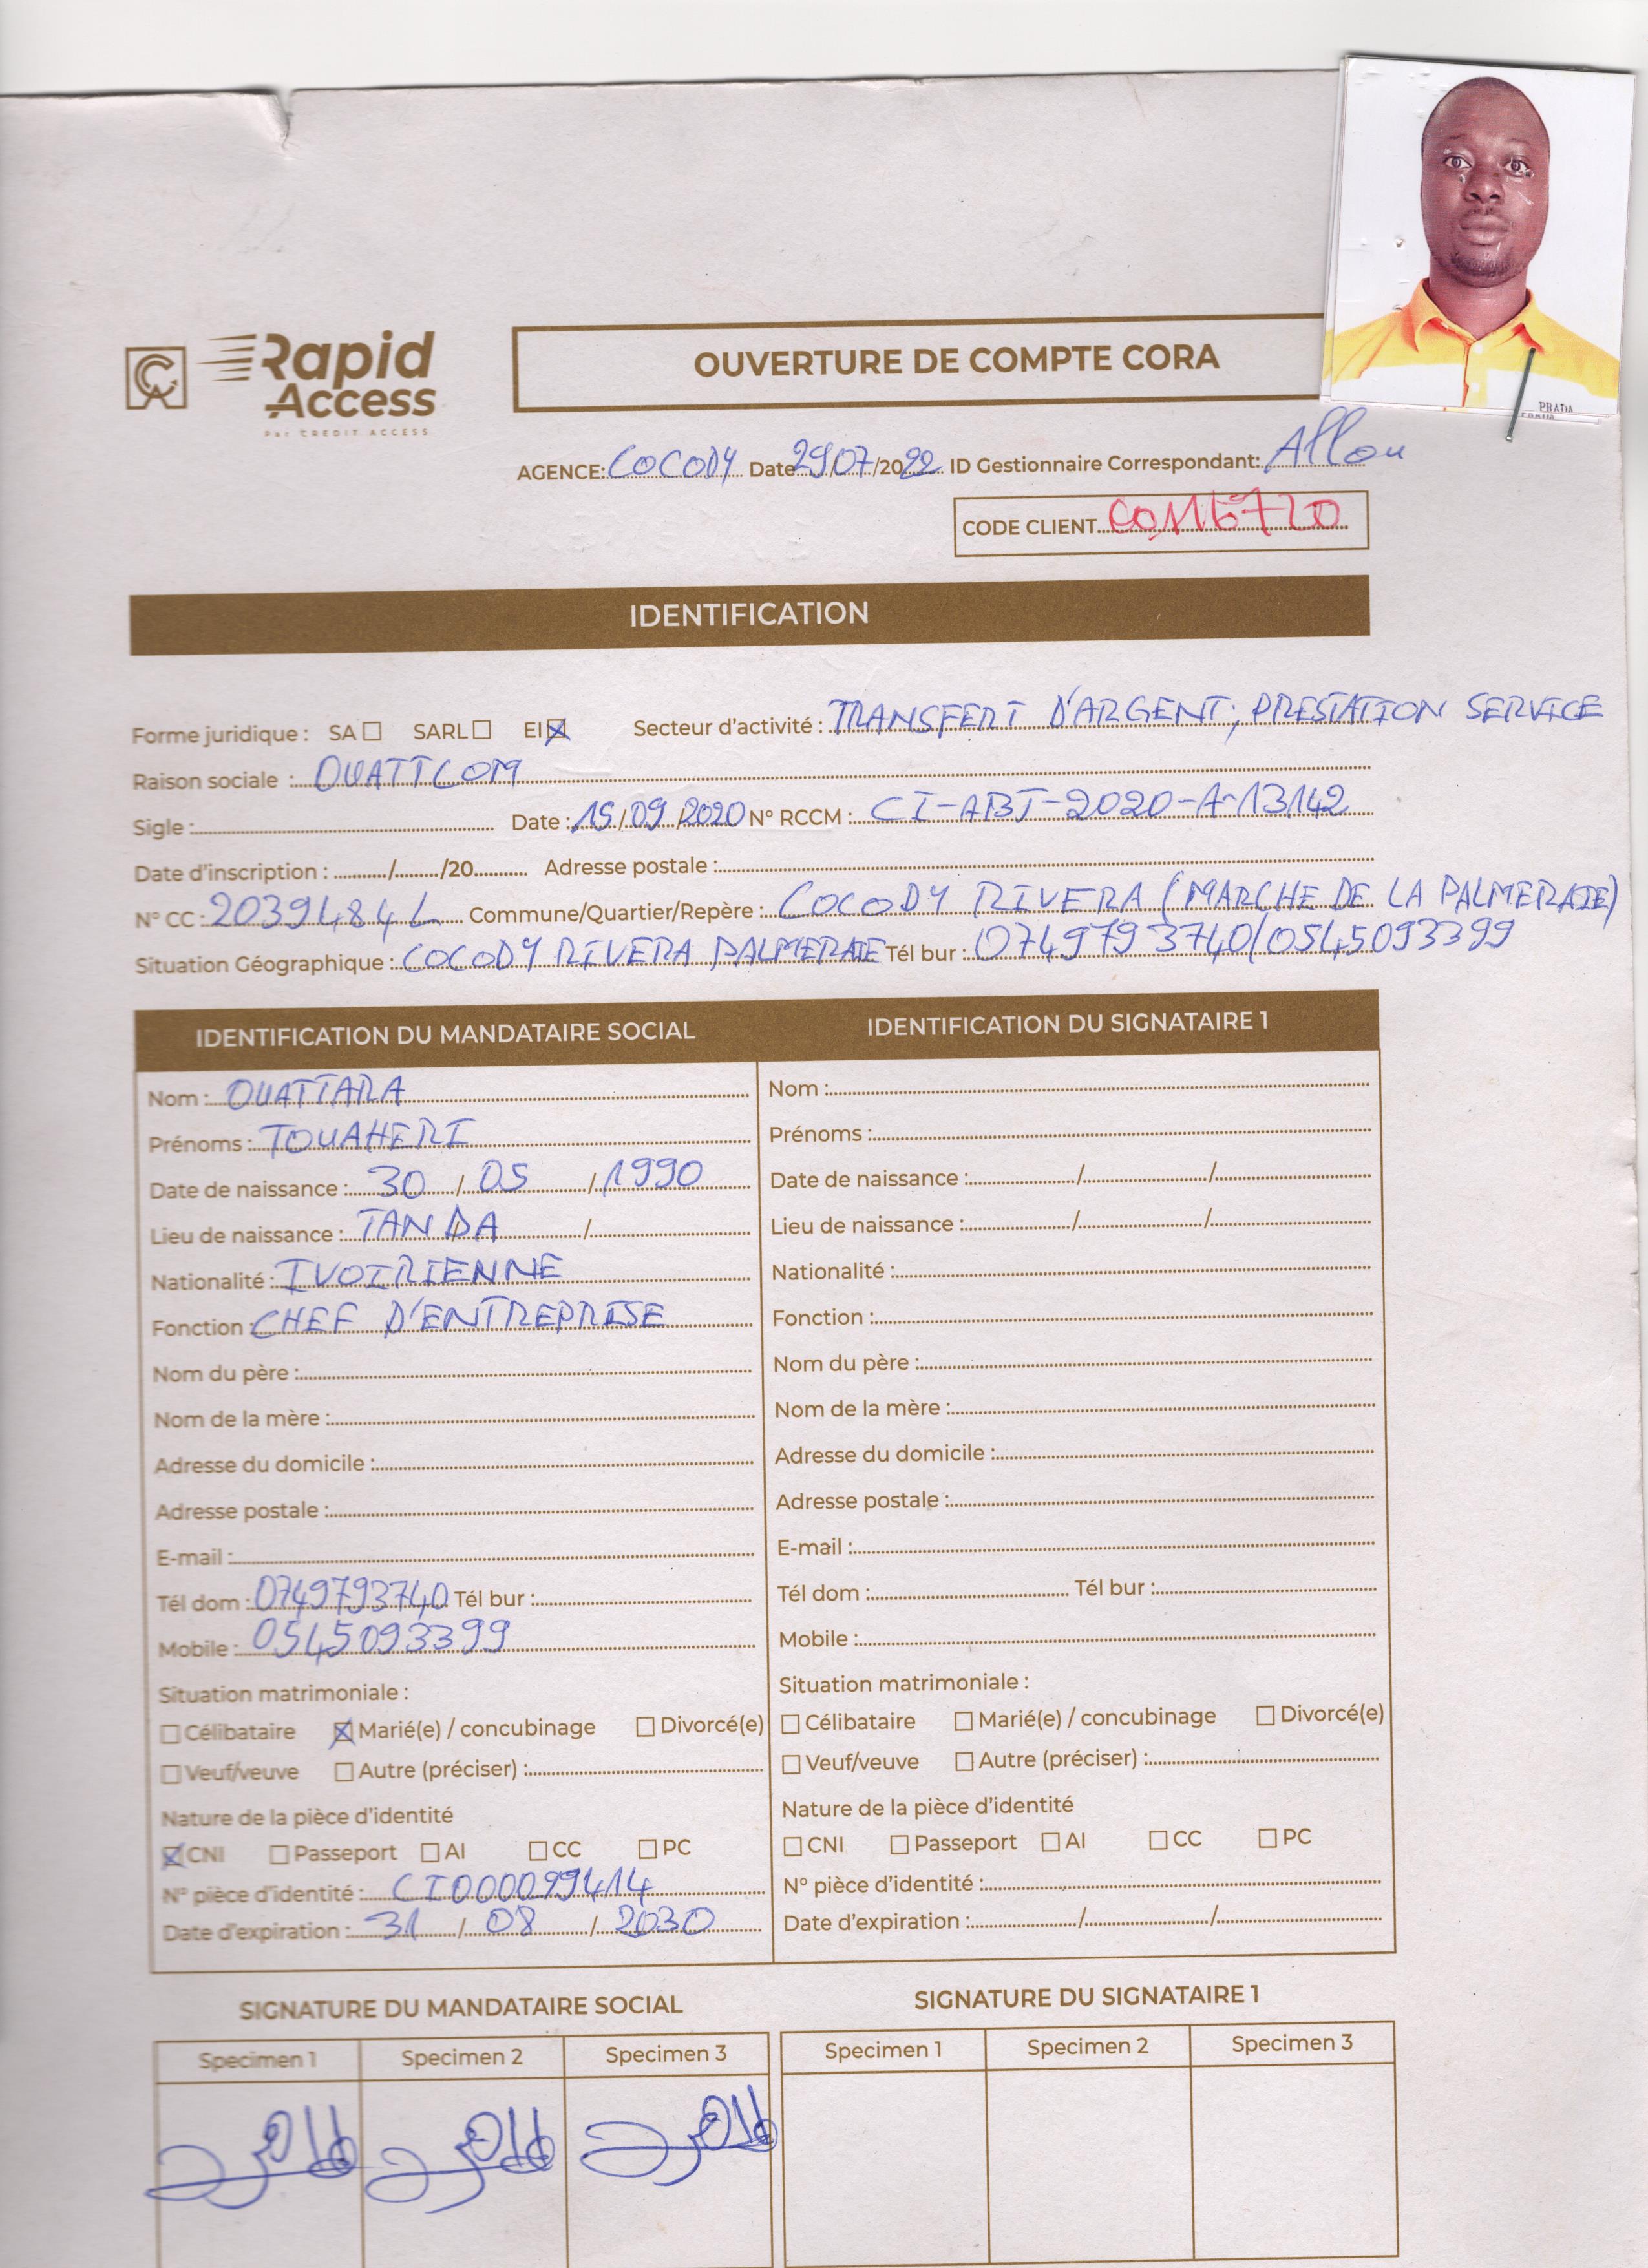 PRADA
Rapid
Access
Par CREDIT ACCESS
OUVERTURE DE COMPTE CORA
AGENCE: COCODY Date 29/07/2022 ID Gestionnaire Correspondant: Allou
CODE CLIENT CO116720
IDENTIFICATION
Forme juridique : SA SARL EI Secteur d'activité : TRANSFERT D'ARGENT; PRESTATION SERVICE
Raison sociale : OUATTCOM
Sigle : Date : 15/09/2020 N° RCCM : CI-ABJ-2020-A-13142
Date d'inscription : / /20 Adresse postale :
N° CC : 2039484 L Commune/Quartier/Repère : COCODY RIVERA (MARCHE DE LA PALMERAIE)
Situation Géographique : COCODY RIVERA PALMERAIE Tél bur : 0749793740/0545093399
IDENTIFICATION DU MANDATAIRE SOCIAL
Nom : OUATTARA
Prénoms : TOUAHERI
Date de naissance : 30 / 05 / 1990
Lieu de naissance : TANDA /
Nationalité : IVOIRIENNE
Fonction : CHEF D'ENTREPRISE
Nom du père :
Nom de la mère :
Adresse du domicile :
Adresse postale :
E-mail :
Tél dom : 0749793740 Tél bur :
Mobile : 0545093399
Situation matrimoniale :
Célibataire Marié(e) / concubinage Divorcé(e)
Veuf/veuve Autre (préciser) :
Nature de la pièce d'identité
CNI Passeport AI CC PC
N° pièce d'identité : CI000099414
Date d'expiration : 31 / 08 / 2030
IDENTIFICATION DU SIGNATAIRE 1
Nom :
Prénoms :
Date de naissance : / /
Lieu de naissance : / /
Nationalité :
Fonction :
Nom du père :
Nom de la mère :
Adresse du domicile :
Adresse postale :
E-mail :
Tél dom : Tél bur :
Mobile :
Situation matrimoniale :
Célibataire Marié(e) / concubinage Divorcé(e)
Veuf/veuve Autre (préciser) :
Nature de la pièce d'identité
CNI Passeport AI CC PC
N° pièce d'identité :
Date d'expiration : / /
SIGNATURE DU MANDATAIRE SOCIAL
Specimen 1 Specimen 2 Specimen 3
SIGNATURE DU SIGNATAIRE 1
Specimen 1 Specimen 2 Specimen 3